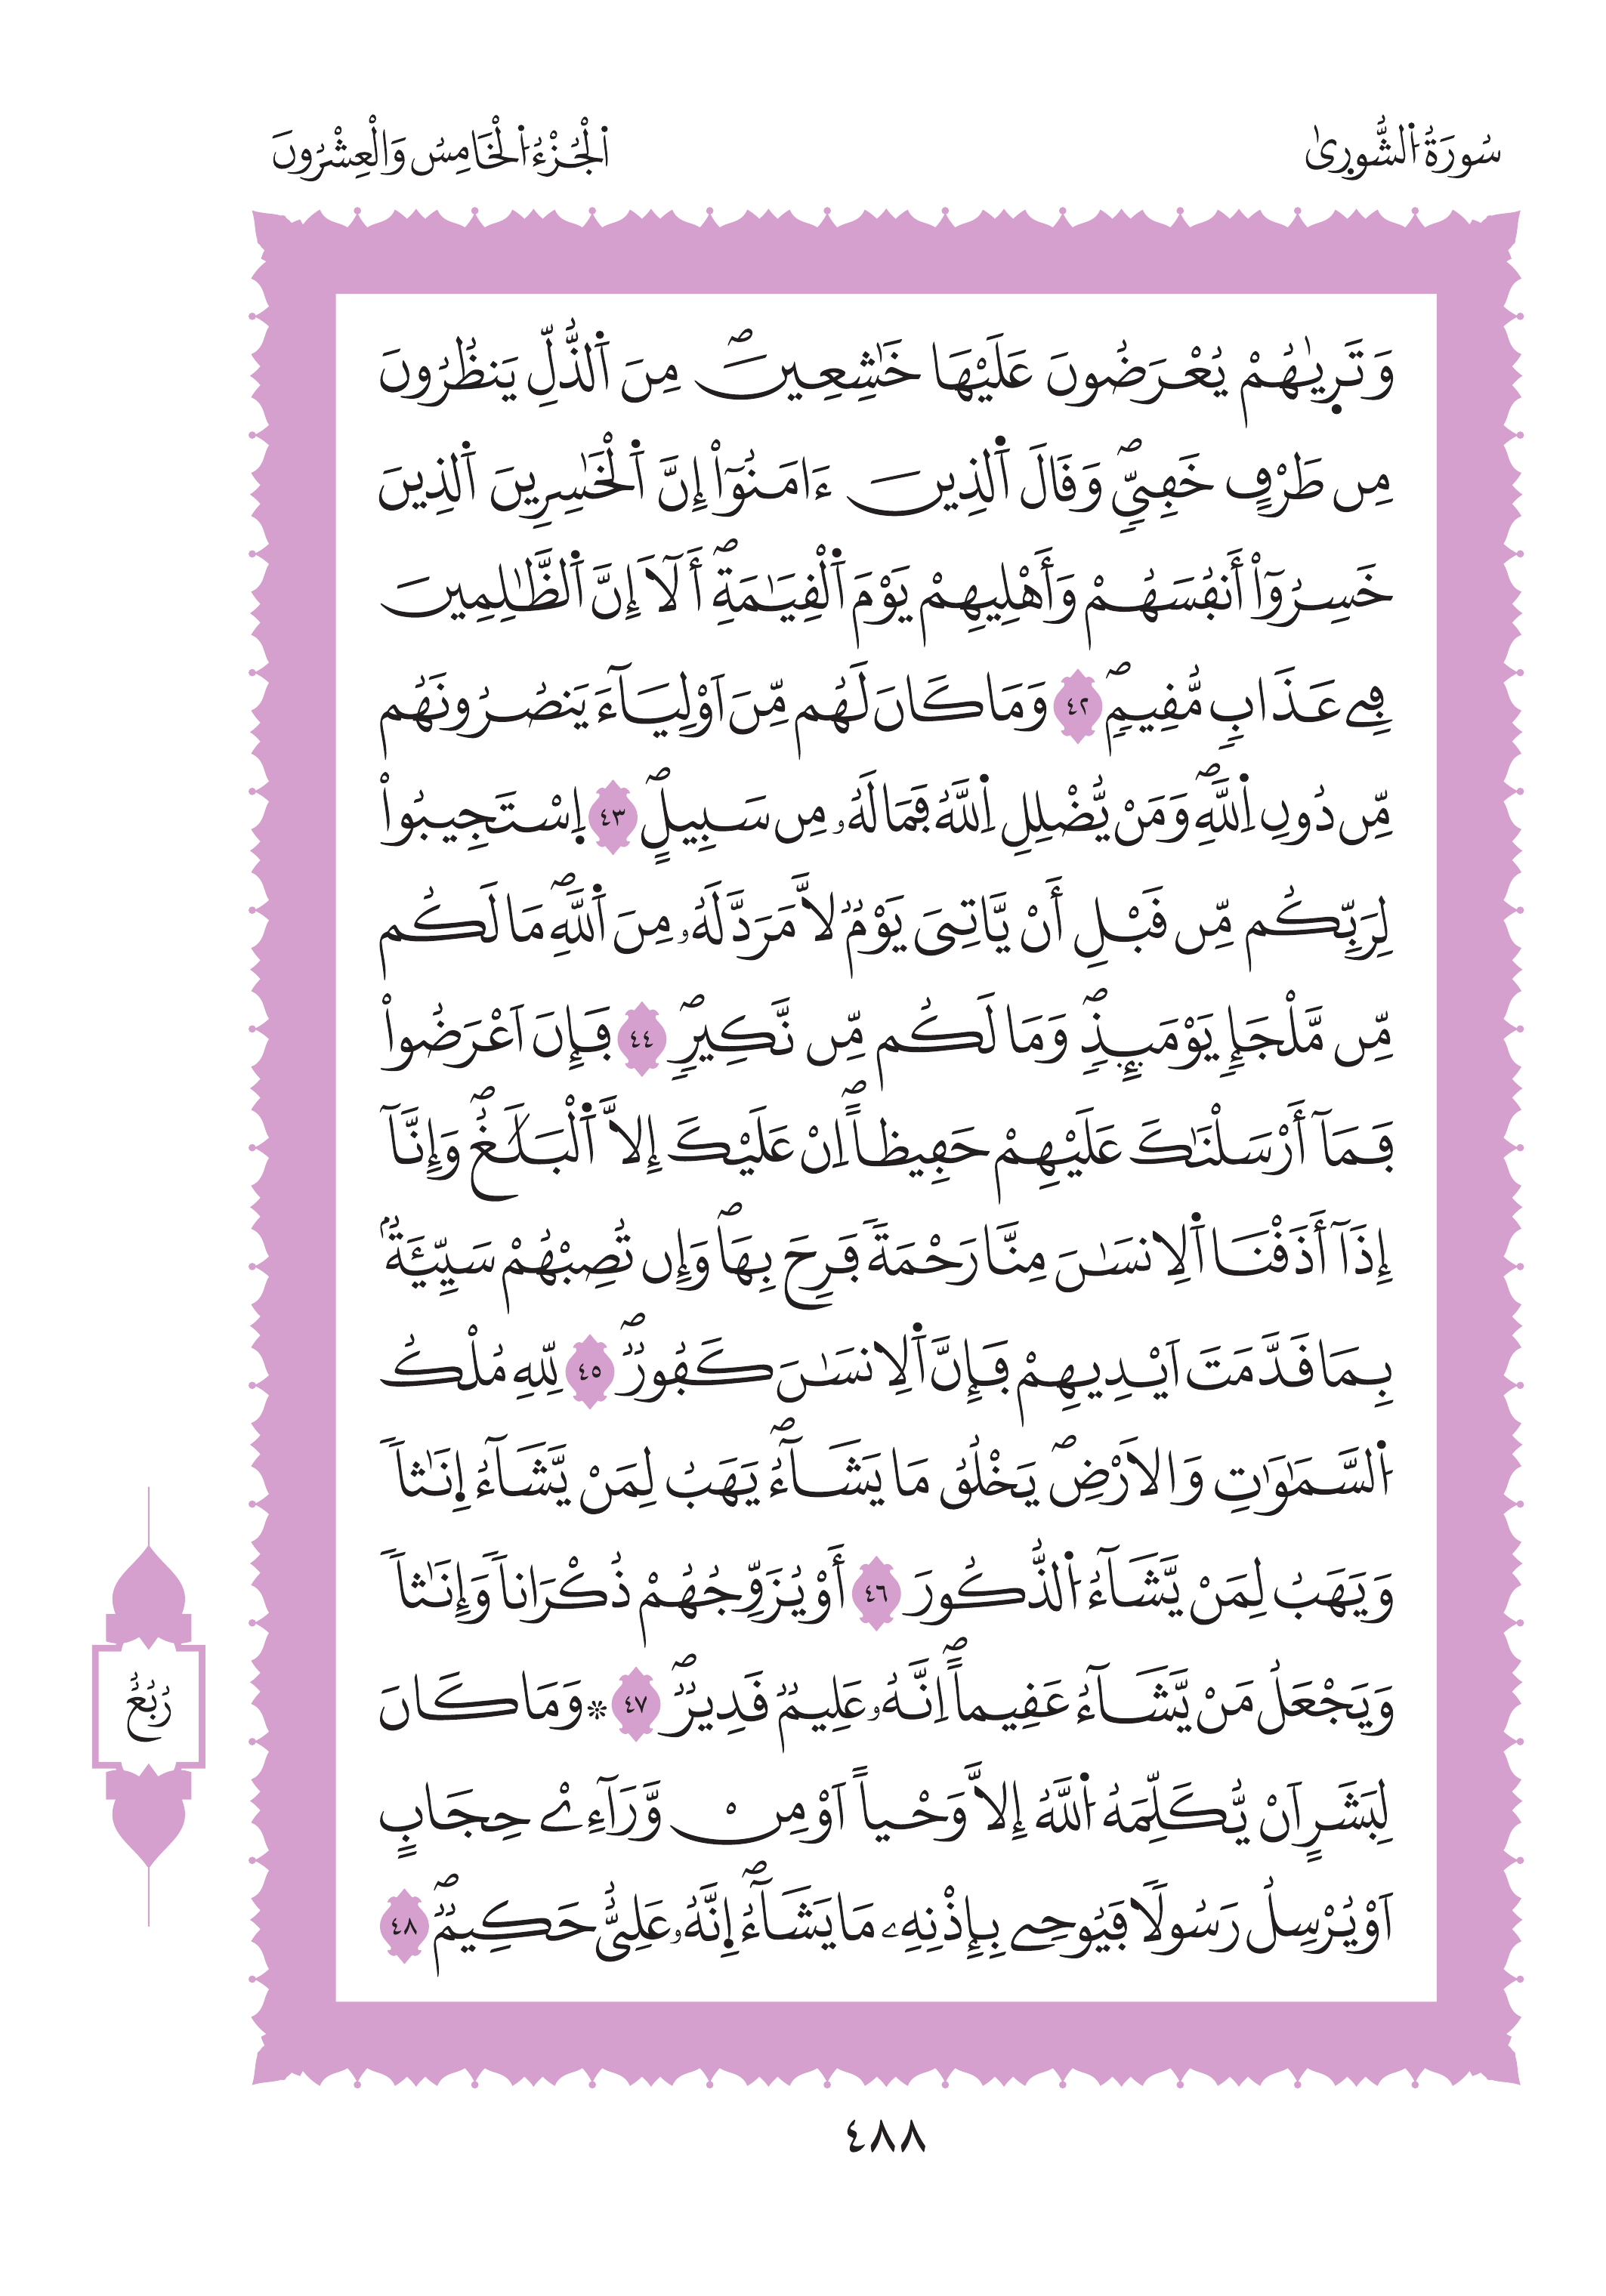 سُورَةُ الشُّورِىٰ
اَلْجُزْءُ الْخَامِسُ وَالْعِشْرُونَ
وَتَرِىٰهُمْ يُعْرَضُونَ عَلَيْهَا خَٰشِعِينَۖ مِنَ اَ۬لذُّلِّ يَنظُرُونَ
مِن طَرْفٍ خَفِيّٖۖ وَقَالَ اَ۬لذِينَ ءَامَنُوٓاْ إِنَّ اَ۬لْخَٰسِرِينَ اَ۬لذِينَ
خَسِرُوٓاْ أَنفُسَهُمْ وَأَهْلِيهِمْ يَوْمَ اَ۬لْقِيَٰمَةِۖ أَلَآ إِنَّ اَ۬لظَّٰلِمِينَ
فِے عَذَابٖ مُّقِيمٖۖ ٤٢ وَمَا كَانَ لَهُم مِّنَ اَوْلِيَآءَ يَنصُرُونَهُم
مِّن دُونِ اِ۬للَّهِۖ وَمَنْ يُّضْلِلِ اِ۬للَّهُ فَمَا لَهُۥ مِن سَبِيلٍۖ ٤٣ اِ۪سْتَجِيبُواْ
لِرَبِّكُم مِّن قَبْلِ أَنْ يَّاتِيَ يَوْمٞ لَّا مَرَدَّ لَهُۥ مِنَ اَ۬للَّهِۖ مَا لَكُم
مِّن مَّلْجَإٖ يَوْمَئِذٖۖ وَمَا لَكُم مِّن نَّكِيرٖۖ ٤٤ فَإِنَ اَعْرَضُواْ
فَمَآ أَرْسَلْنَٰكَ عَلَيْهِمْ حَفِيظاًۖ اِنْ عَلَيْكَ إِلَّا اَ۬لْبَلَٰغُۖ وَإِنَّآ
إِذَآ أَذَقْنَا اَ۬لِانسَٰنَ مِنَّا رَحْمَةٗ فَرِحَ بِهَاۖ وَإِن تُصِبْهُمْ سَيِّئَةُۢ
بِمَا قَدَّمَتَ اَيْدِيهِمْ فَإِنَّ اَ۬لِانسَٰنَ كَفُورٞۖ ٤٥ لِّلهِ مُلْكُ
اُ۬لسَّمَٰوَٰتِ وَالَارْضِۖ يَخْلُقُ مَا يَشَآءُۖ يَهَبُ لِمَنْ يَّشَآءُ اِ۪نَٰثاٗ
وَيَهَبُ لِمَنْ يَّشَآءُ اُ۬لذُّكُورَ ٤٦ أَوْ يُزَوِّجُهُمْ ذُكْرَاناٗ وَإِنَٰثاٗ
وَيَجْعَلُ مَنْ يَّشَآءُ عَقِيماًۖ اِنَّهُۥ عَلِيمٞ قَدِيرٞۖ ٤٧ ۞وَمَا كَانَ
لِبَشَرٍ اَنْ يُّكَلِّمَهُ اُ۬للَّهُ إِلَّا وَحْياً اَوْ مِنْ وَّرَآءِےْ حِجَابٍ
اَوْ يُرْسِلُ رَسُولٗا فَيُوحِے بِإِذْنِهِۦ مَا يَشَآءُۖ اِ۪نَّهُۥ عَلِيٌّ حَكِيمٞۖ ٤٨
رُبُعُ
٤٨٨